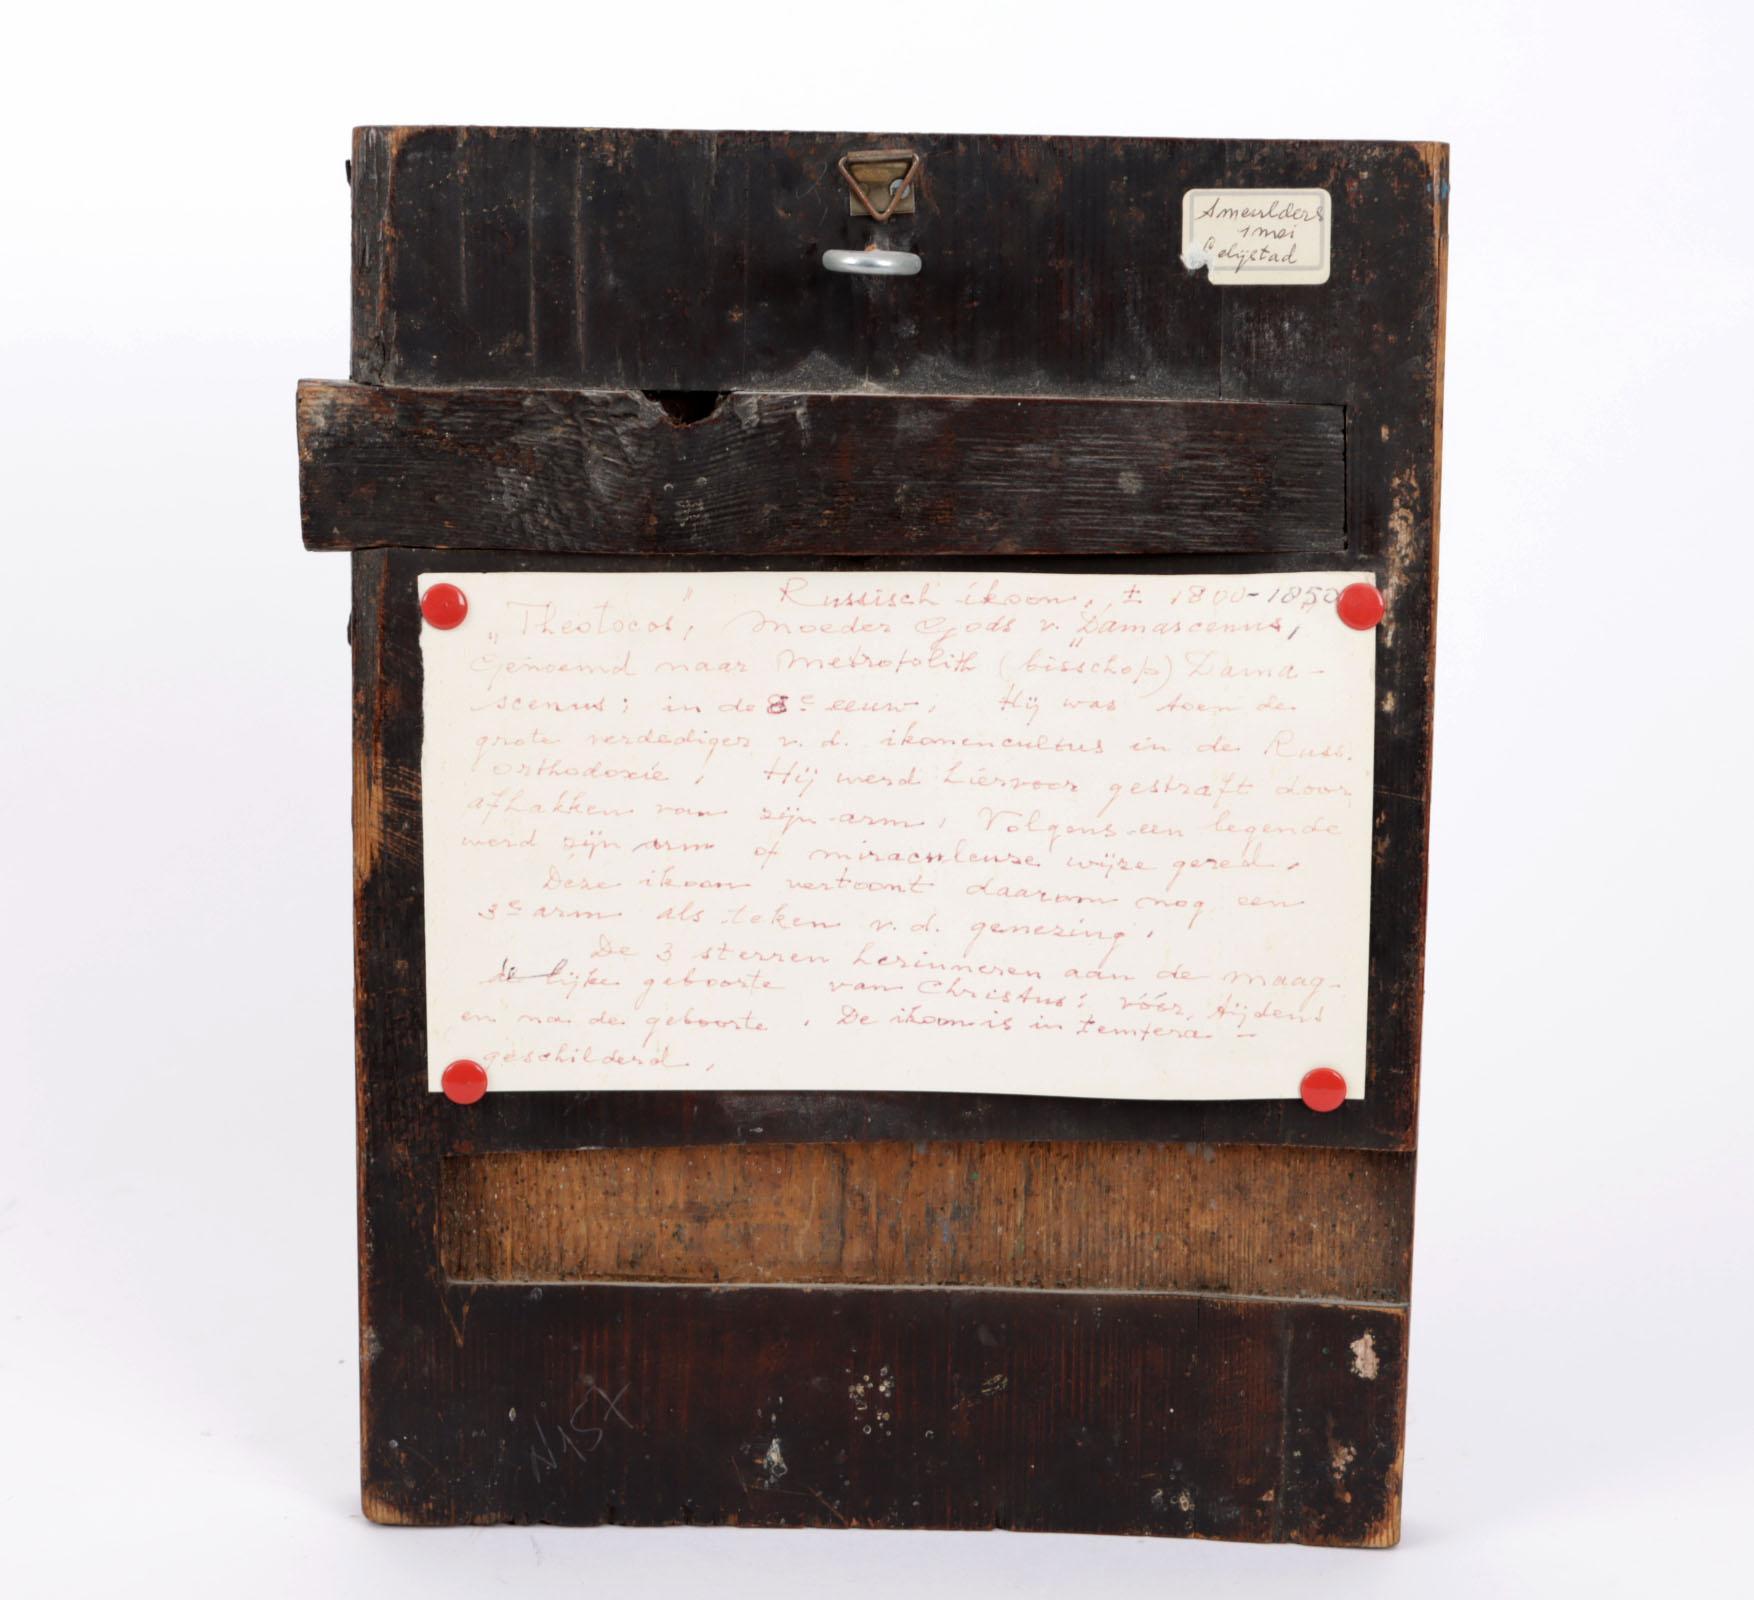 Smeulders
1 mei
Lelijstad
Russisch ikoon, ± 1800-1850
"Theotocos", Moeder Gods v. "Damascenus",
Genoemd naar Metropolith (bisschop) Dama-
scenus; in de 8e eeuw. Hij was toen de
grote verdediger v. d. ikonencultus in de Russ.
orthodoxie. Hij werd hiervoor gestraft door
afhakken van zijn arm. Volgens een legende
werd zijn arm of miraculeuze wijze gered.
Deze ikoon vertoont daarom nog een
3e arm als teken v. d. genezing.
De 3 sterren herinneren aan de maag-
de lijke geboorte van Christus: vóór, tijdens
en na de geboorte. De ikoon is in tempera-
geschilderd.
N15X